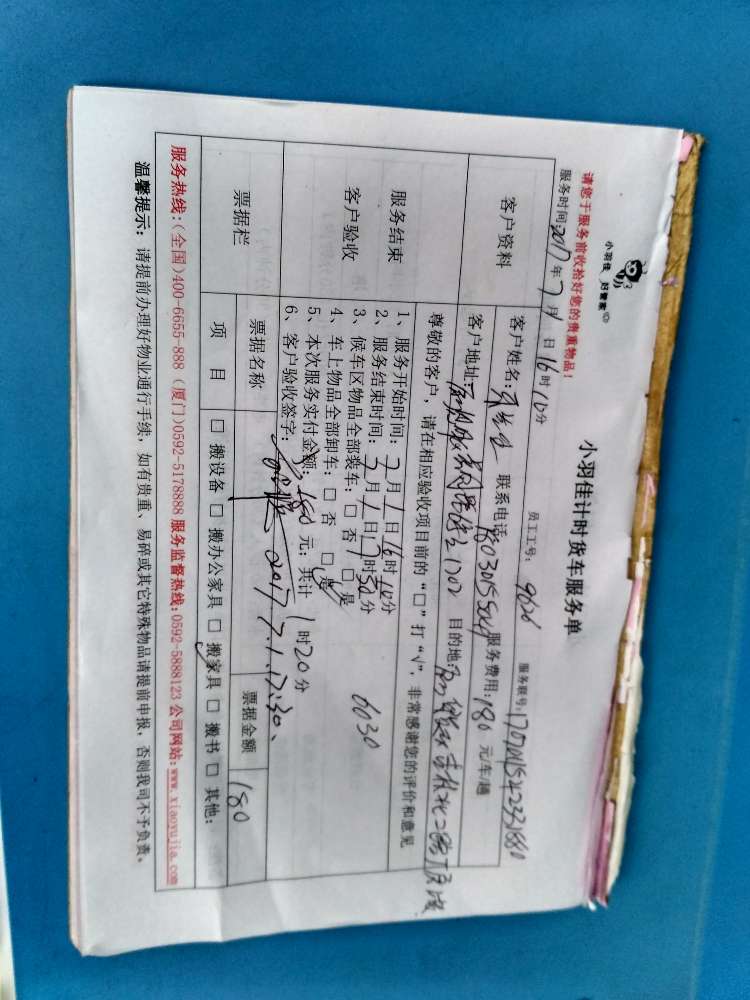 小羽佳 好管家
小羽佳计时货车服务单
请您于服务前收拾好您的贵重物品!
员工工号: 9626 服务联号:
服务时间2017年7月1日16时10分
客户资料
客户姓名: 联系电话: 服务费用:180元/车/趟
客户地址: 目的地:
尊敬的客户,请在相应验收项目前的“□”打“√”,非常感谢您的评价和意见
服务结束
客户验收
1、服务开始时间:7月1日16时10分
2、服务结束时间:7月1日17时30分
3、候车区物品全部装车:□ 否 □ 是
6030
4、车上物品全部卸车:□ 否 □ 是
5、本次服务实付金额:180元;共计1时20分
6、客户验收签字: 2017.7.1.17:30.
票据栏
票据名称 票据金额 180
项 目 □ 搬设备 □ 搬办公家具 □ 搬家具 □ 搬书 □ 其他:
服务热线:(全国)400-6655-888 (厦门)0592-5178888 服务监督热线:0592-5888123 公司网站:www.xiaoyujia.com
温馨提示:请提前办理好物业通行手续,如有贵重、易碎或其它特殊物品请提前申报,否则我司不予负责。